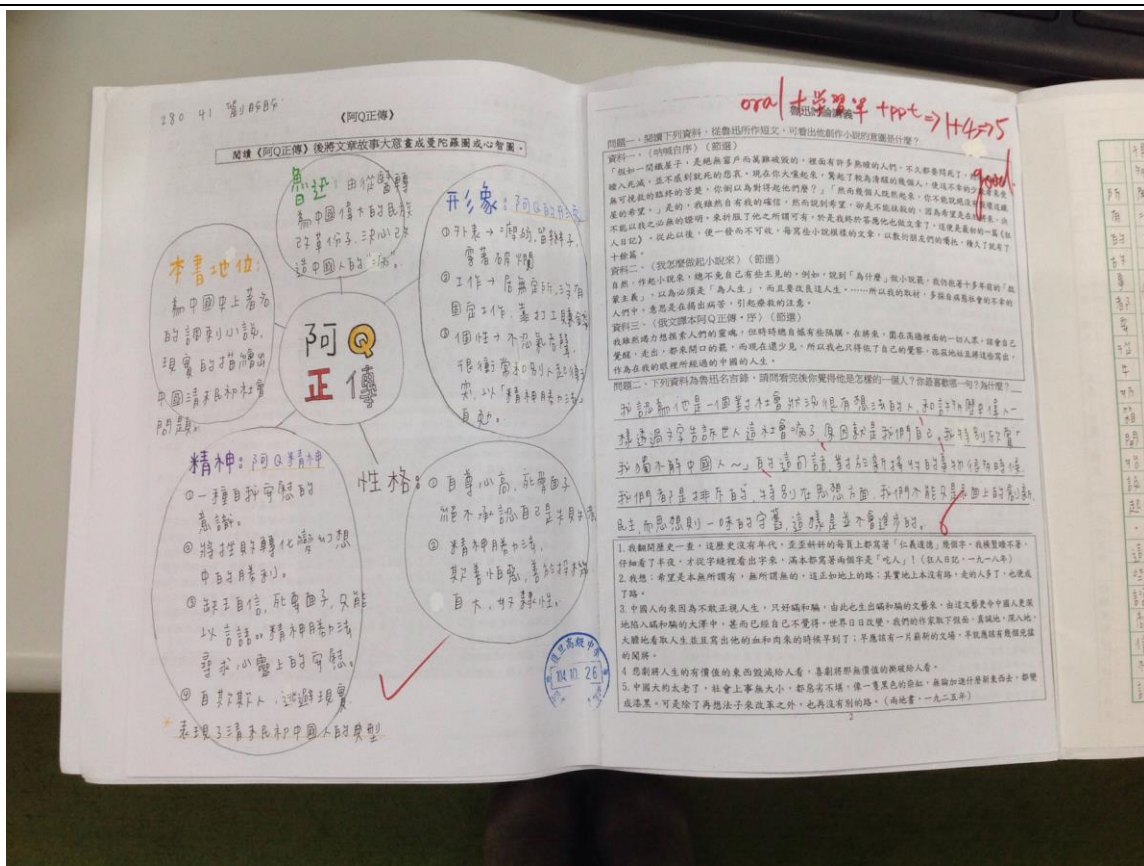 280 41
《阿Q正傳》
閱讀《阿Q正傳》後將文章故事大意畫成曼陀羅圖或心智圖。
魯迅:由從醫轉
為中國偉大的民族
改革份子,決心改
造中國人的"病"。
本書地位:
為中國史上著名
的諷刺小說,
現實的描繪出
中國清末民初社會
問題。
阿Q
正傳
形象:阿Q的形象
①外表→瘦弱,留辮子,
穿著破爛
②工作→居無定所,沒有
固定工作,靠打工賺錢
③個性→不忍氣吞聲,
很衝常和別人起衝
突,以「精神勝利法」
自勉。
精神:阿Q精神
①一種自我安慰的
意識。
②將挫敗轉化為幻想
中的勝利。
③缺乏自信,死要面子,只能
以言語。精神勝利法
尋求心靈上的安慰。
④自欺欺人,逃避現實
*表現了清末民初中國人的典型
性格:
①自尊心高,死要面子
絕不承認自己是失敗者
②精神勝利法,
欺善怕惡,善於投機
自大,奴隸性。
復旦高級中學
104.10.26
oral+學習單+ppt=>1+4=>5
good
魯迅討論講義
問題一、閱讀下列資料,從魯迅所作短文,可看出他創作小說的意圖是什麼?
資料一、《吶喊自序》(節選)
「假如一間鐵屋子,是絕無窗戶而萬難破毀的,裡面有許多熟睡的人們,不久都要悶死了,
睡入死滅,並不感到就死的悲哀。現在你大嚷起來,驚起了較為清醒的幾個人,使這不幸的少
無可挽救的臨終的苦楚,你倒以為對得起他們麼?」「然而幾個人既然起來,你不能說絕沒有
屋的希望。」是的,我雖然自有我的確信,然而說到希望,卻是不能抹殺的,因為希望是在於將來,決
不能以我之必無的證明,來折服了他之所謂可有,於是我終於答應他也做文章了,這便是最初的一篇《狂
人日記》。從此以後,便一發而不可收,每寫些小說模樣的文章,以敷衍朋友們的囑託,積久了就有了
十餘篇。
資料二、《我怎麼做起小說來》(節選)
自然,作起小說來,總不免自己有些主見的。例如,說到「為什麼」做小說罷,我仍抱著十多年前的「啟
蒙主義」,以為必須是「為人生」,而且要改良這人生。……所以我的取材,多採自病態社會的不幸的
人們中,意思是在揭出病苦,引起療救的注意。
資料三、《俄文譯本阿Q正傳・序》(節選)
我雖然竭力想探索人們的靈魂,但時時總自憾有些隔膜。在將來,圍在高牆裡面的一切人眾,該會自己
覺醒,走出,都來開口的罷,而現在還少見,所以我也只得依了自己的覺察,孤寂地姑且將這些寫出,
作為在我的眼裡所經過的中國的人生。
問題二、下列資料為魯迅名言錄,請問看完後你覺得他是怎樣的一個人?你最喜歡哪一句?為什麼?
我認為他是一個對社會狀況很有想法的人,和許多歷史偉人一
樣透過文字告訴世人這社會病了,原因就是我們自己。我特別欣賞「
我獨不解中國人~」的這句話,對於新接收的事物很多時候
我們都是排斥的,特別在思想方面,我們不能只是表面上的創新、
民主,而思想則一味的守舊,這樣是並不會進步的。
1.我翻開歷史一查,這歷史沒有年代,歪歪斜斜的每頁上都寫著「仁義道德」幾個字。我橫豎睡不著,
仔細看了半夜,才從字縫裡看出字來,滿本都寫著兩個字是「吃人」!(狂人日記,一九一八年)
2.我想:希望是本無所謂有,無所謂無的,這正如地上的路;其實地上本沒有路,走的人多了,也便成
了路。
3.中國人向來因為不敢正視人生,只好瞞和騙,由此也生出瞞和騙的文藝來,由這文藝更令中國人更深
地陷入瞞和騙的大澤中,甚而已經自己不覺得。世界日日改變,我們的作家取下假面,真誠地,深入地,
大膽地看取人生並且寫出他的血和肉來的時候早到了;早應該有一片嶄新的文場,早就應該有幾個兇猛
的闖將。
4 悲劇將人生的有價值的東西毀滅給人看,喜劇將那無價值的撕破給人看。
5.中國大約太老了,社會上事無大小,都惡劣不堪,像一隻黑色的染缸,無論加進什麼新東西去,都變
成漆黑。可是除了再想法子來改革之外,也再沒有別的路。(兩地書,一九二五年)
2